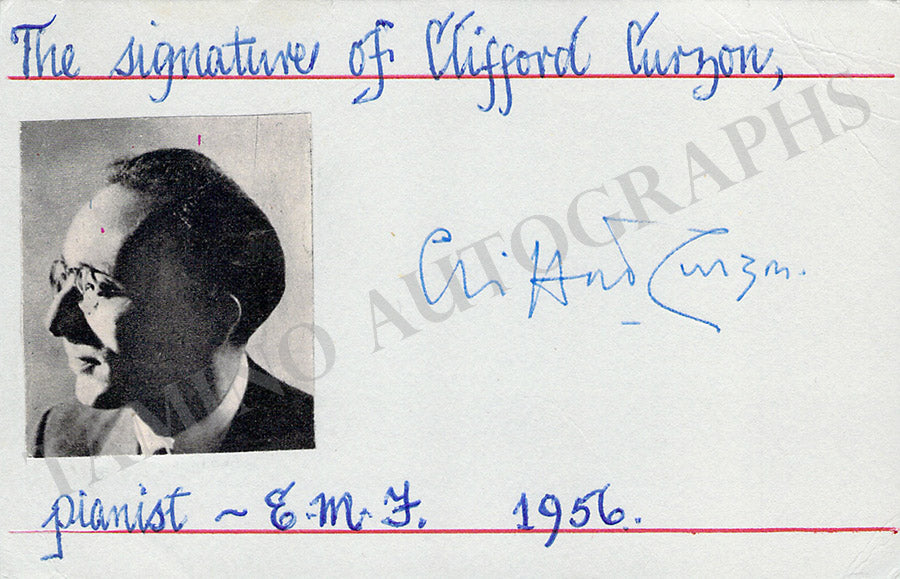 The signature of Clifford Curzon,
Clifford Curzon.
TAMINO AUTOGRAPHS
pianist ~ E.M.F. 1956.